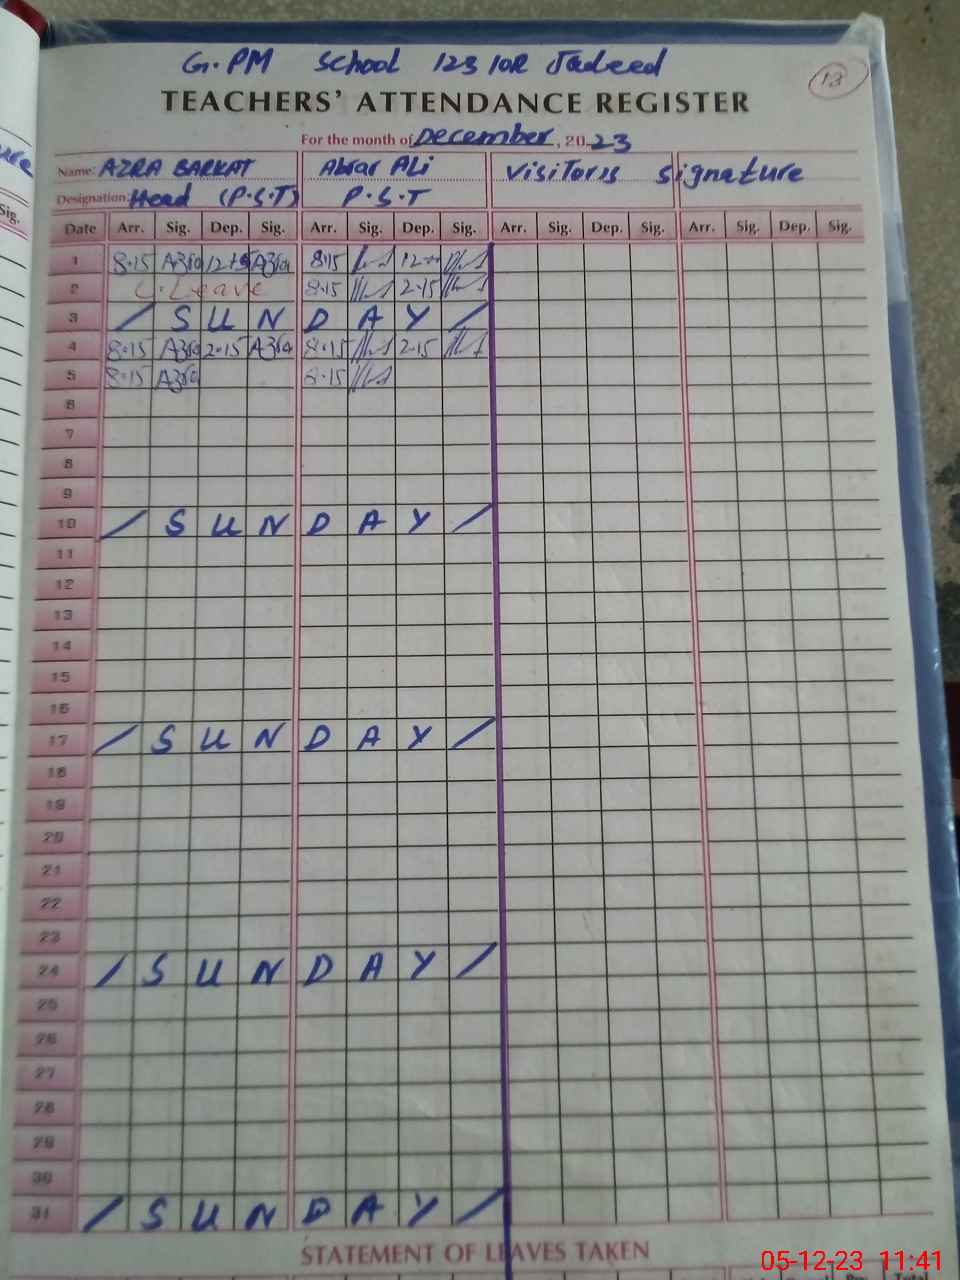 G.PM School 123 10R Jadeed
13
TEACHERS' ATTENDANCE REGISTER
For the month of December, 2023
Name: AZRA BARKAT Abrar ALi Visitors signature
Designation: Head (P.S.T) P.S.T
Date Arr. Sig. Dep. Sig. Arr. Sig. Dep. Sig. Arr. Sig. Dep. Sig. Arr. Sig. Dep. Sig.
1 8.15 Azra Azra 8.15
2 Leave 8.15 2.15
3 / S U N D A Y /
4 8.15 Azra 2.15 Azra 8.15 2.15
5 8.15 Azra 8.15
6
7
8
9
10 / S U N D A Y /
11
12
13
14
15
16
17 / S U N D A Y /
18
19
20
21
22
23
24 / S U N D A Y /
25
26
27
28
29
30
31 / S U N D A Y /
STATEMENT OF LEAVES TAKEN
05-12-23 11:41